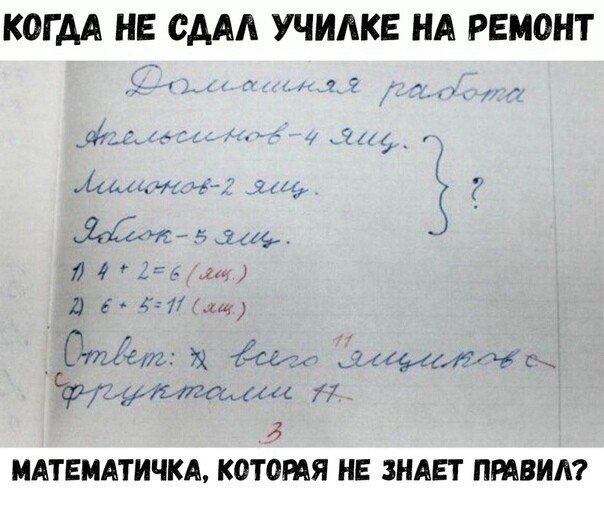 КОГДА НЕ СДАЛ УЧИЛКЕ НА РЕМОНТ
Домашняя работа
Апельсинов-4 ящ.
Лимонов-2 ящ.
?
Яблок-5 ящ.
1) 4 + 2=6 (ящ.)
2) 6 + 5=11 (ящ.)
Ответ: всего 11 ящиков с
с фруктами 11.
3
МАТЕМАТИЧКА, КОТОРАЯ НЕ ЗНАЕТ ПРАВИЛ?